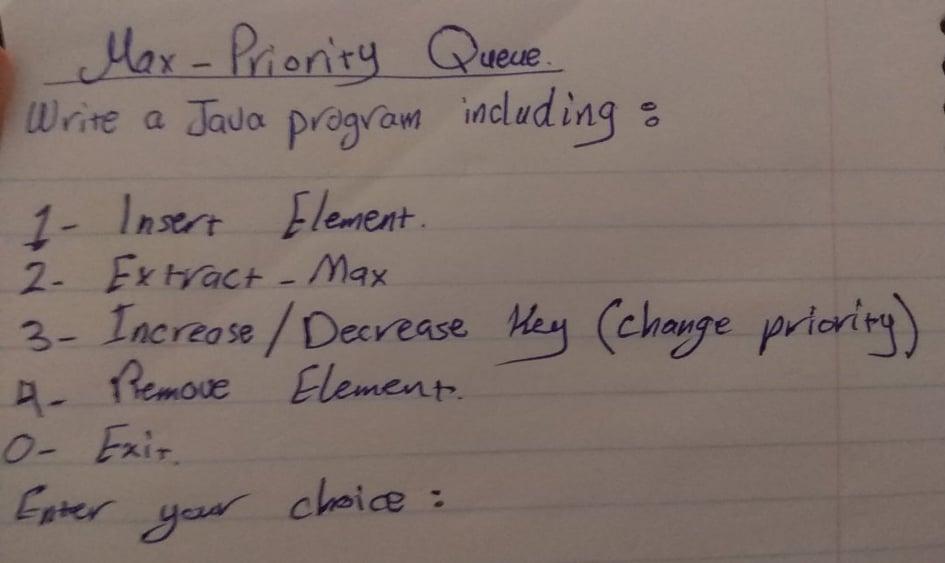 Max-Priority Queue.
Write a Java program including:
1- Insert Element.
2- Extract-Max
3- Increase/Decrease Key (change priority)
4- Remove Element.
0- Exit.
Enter your choice: